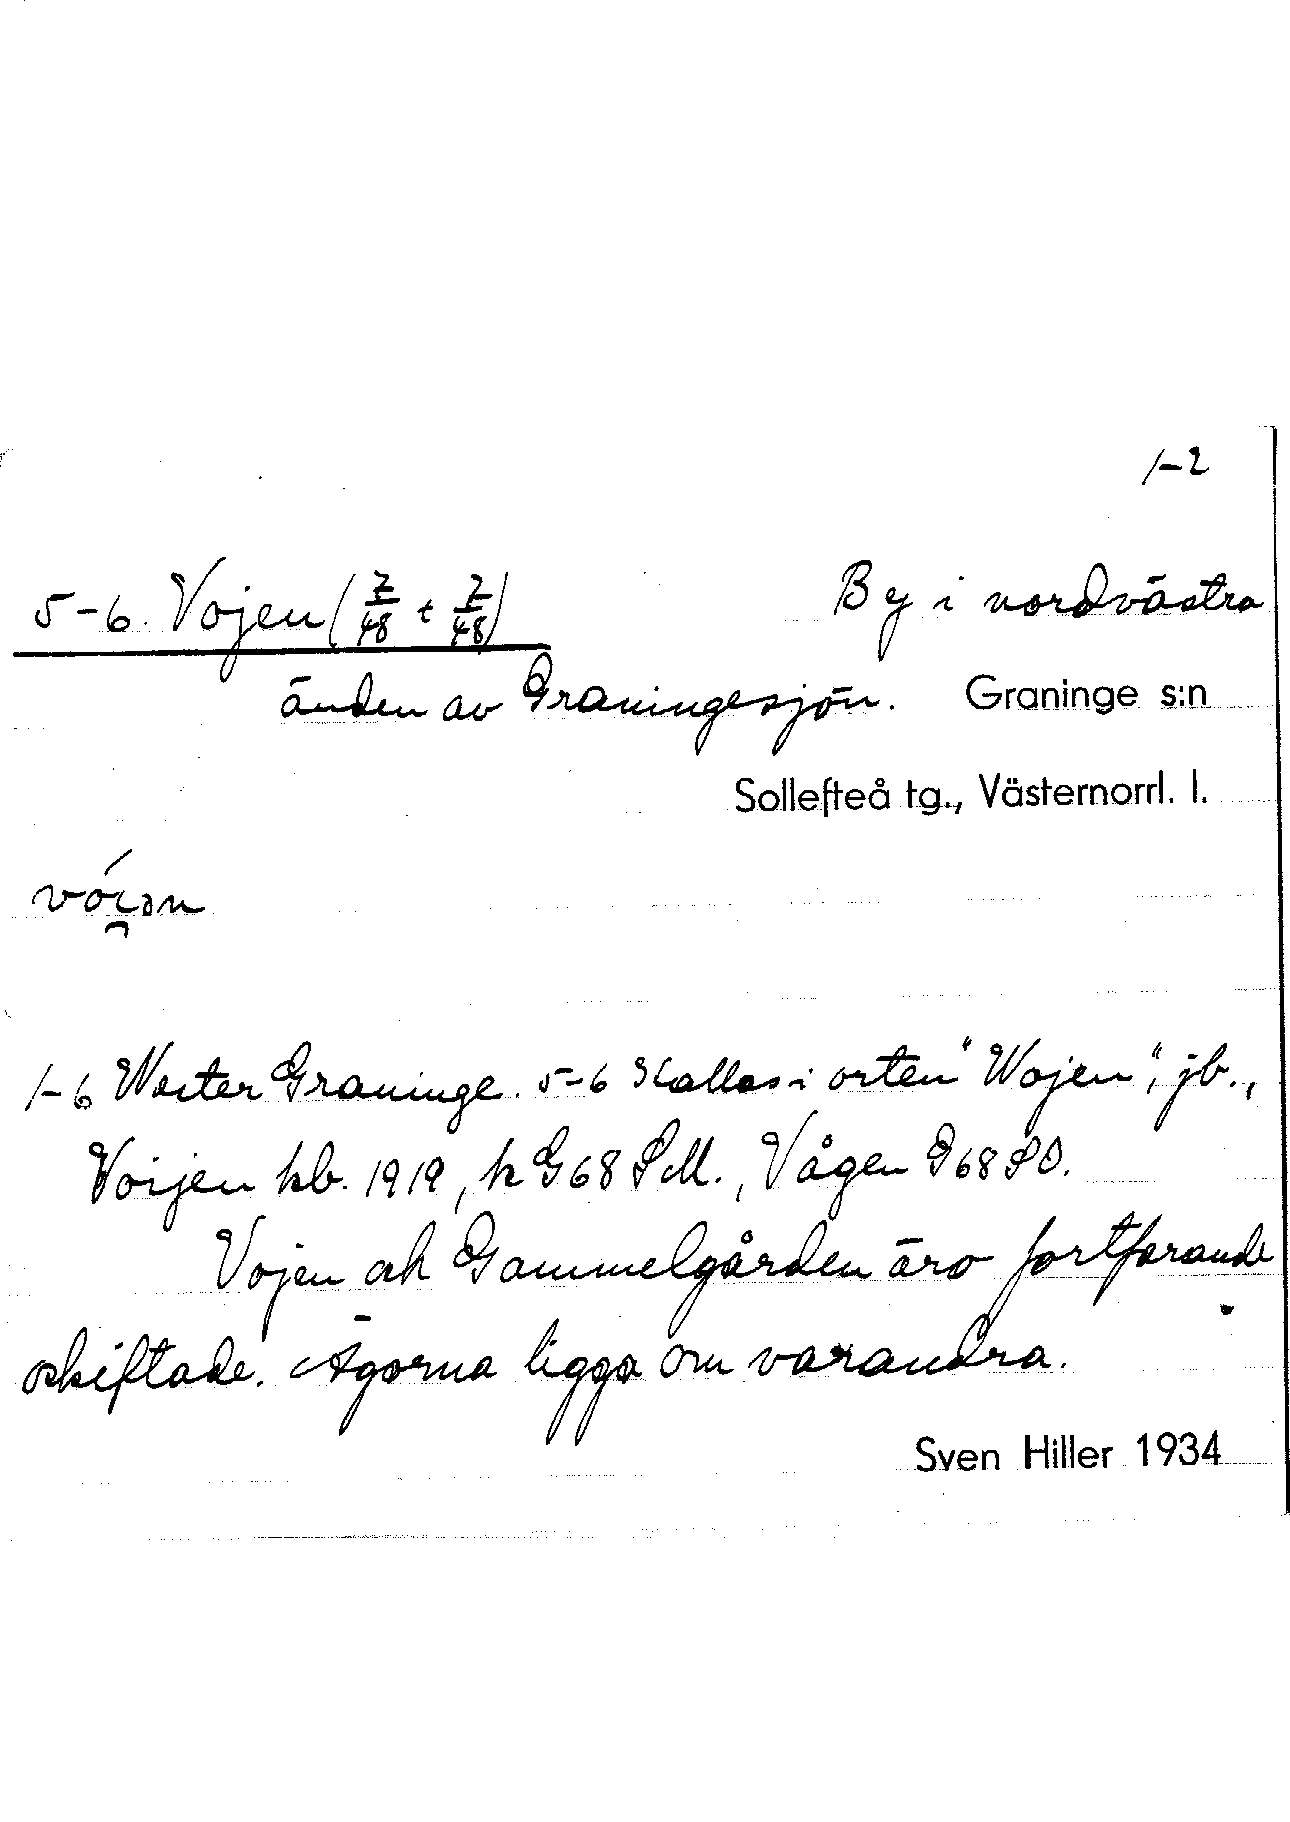 1-2
5-6. Vojen (7/48 + 7/48) By i nordvästra
änden av Graningesjön. Graninge s:n
Sollefteå tg., Västernorrl. l.
1-6 Wester Graninge. 5-6 Kallas i orten "Wojen", jb.,
Voijen kb. 1919, k G68 SM., Vågen G68 SO.
Vojen och Gammelgården äro fortfarande
skiftade. Ägorna ligga om varandra.
Sven Hiller 1934